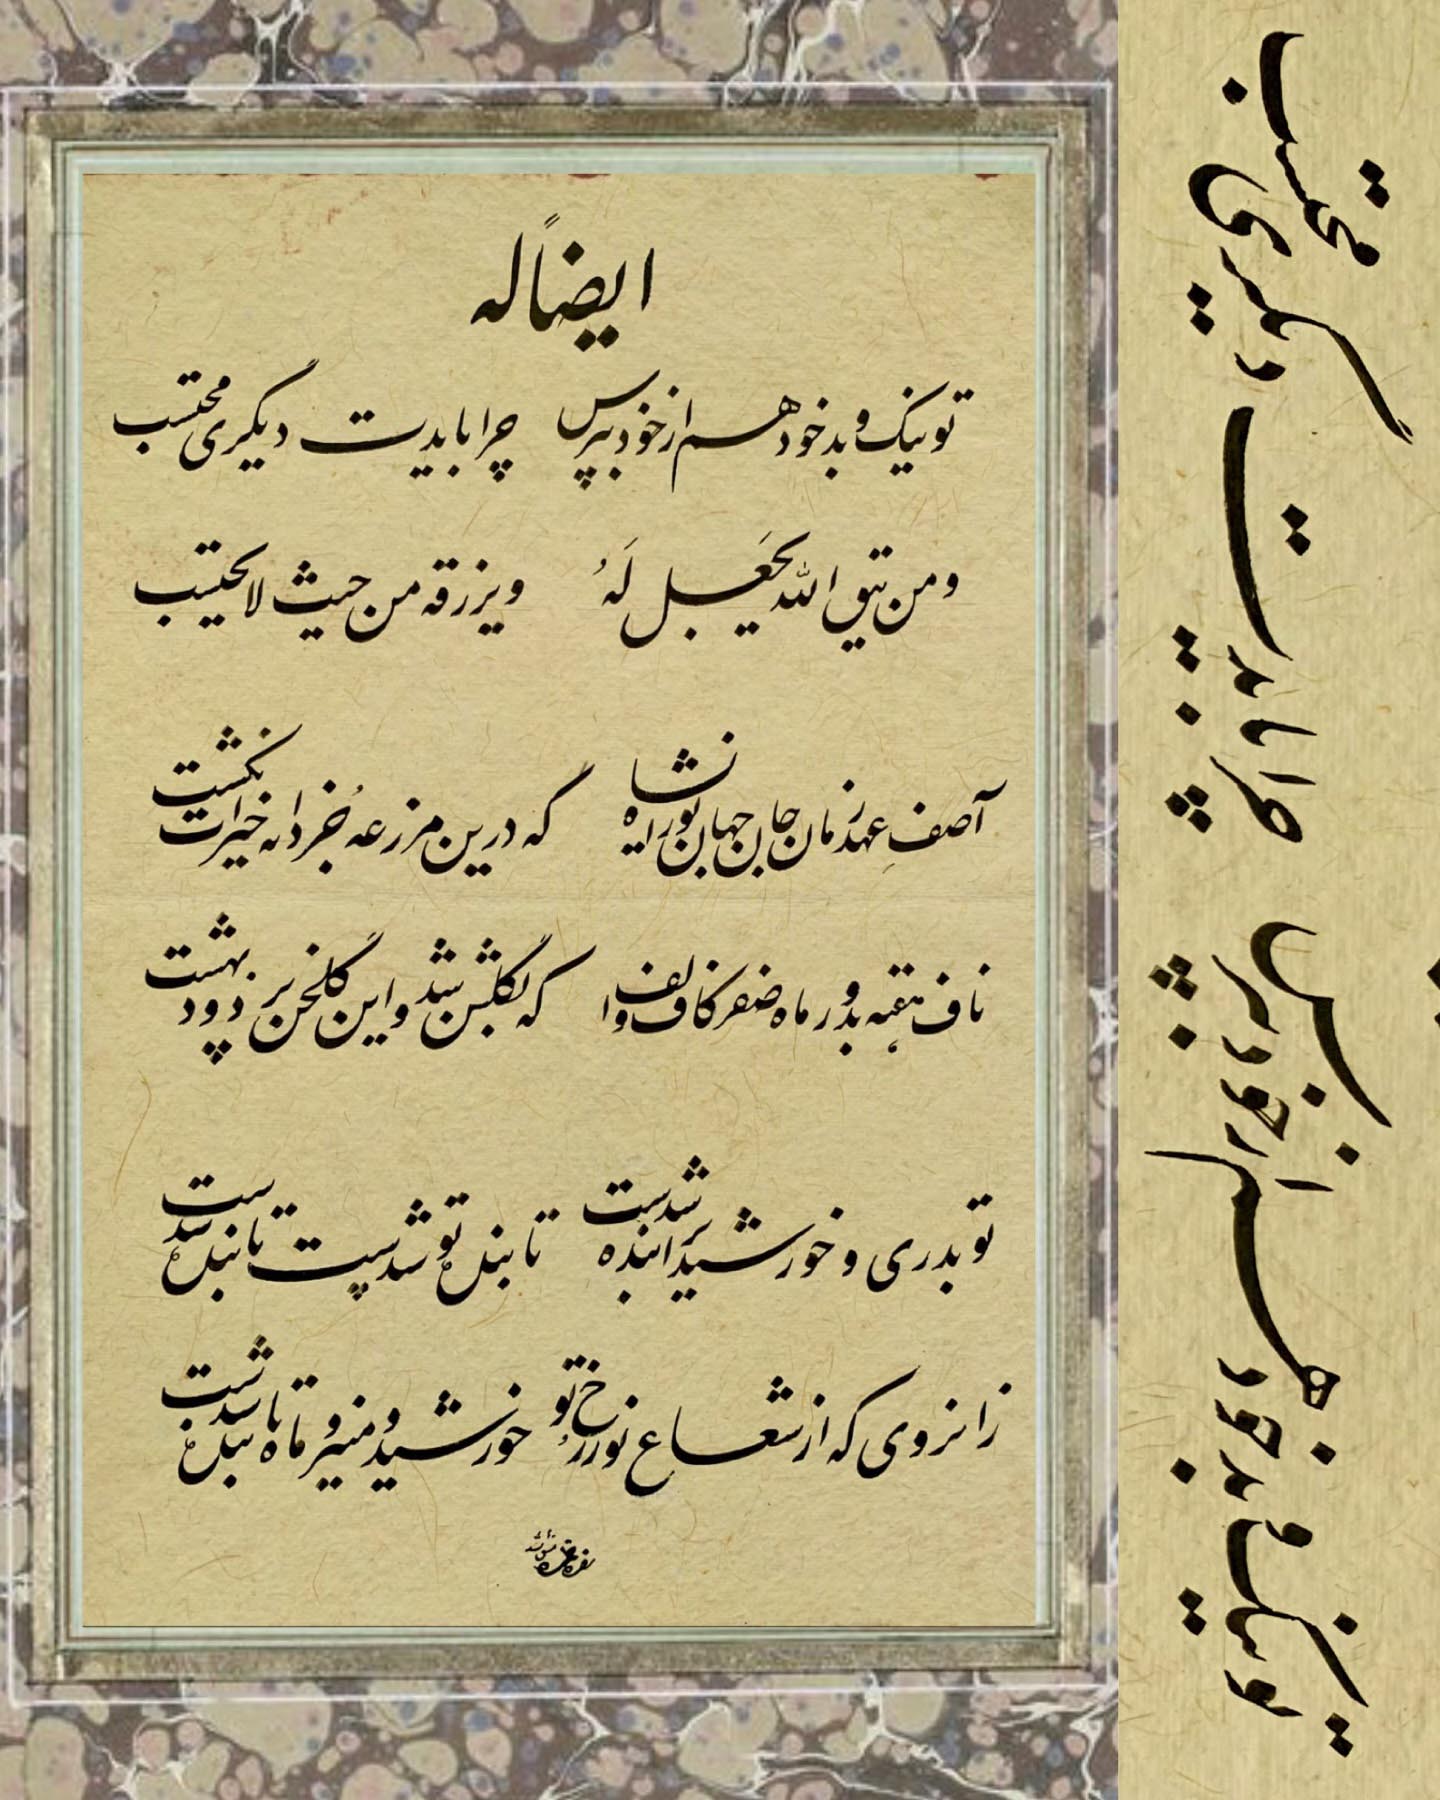 ایضاً له
تو نیک و بد خود هم از خود بپرس چرا بایدت دیگری محتسب
و من یتق الله یَجعل لَهُ و یرزقه من حیث لا یحتسب
آصفِ عهد زمان جان جهان تورانشاه که درین مزرعه جُز دانه خیرات نکشت
ناف هفته بد و از ماه صفر کاف و الف که بگلشن شد و این گلخن پر دود بهشت
تو بدری و خورشید ترا بنده شدست تا بنده تو شدست تابنده شدست
زانروی که از شعاع نور رخ تو خورشید منیر و ماه تابنده شدست
تو نیک و بد خود هم از خود بپرس چرا بایدت دیگری محتسب